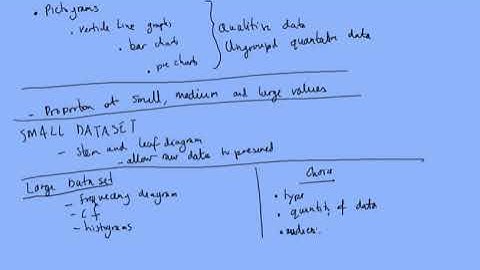 • Pictograms
• vertical line graphs
• bar charts
• pie charts
Qualitive data
Ungrouped quantative data
- Proportion of small, medium and large values
SMALL DATASET
- Stem and leaf diagram
- allow raw data to presented
Large Data set
- frequency diagram
- C f
- histograms
Choice
• type
• quantity of data